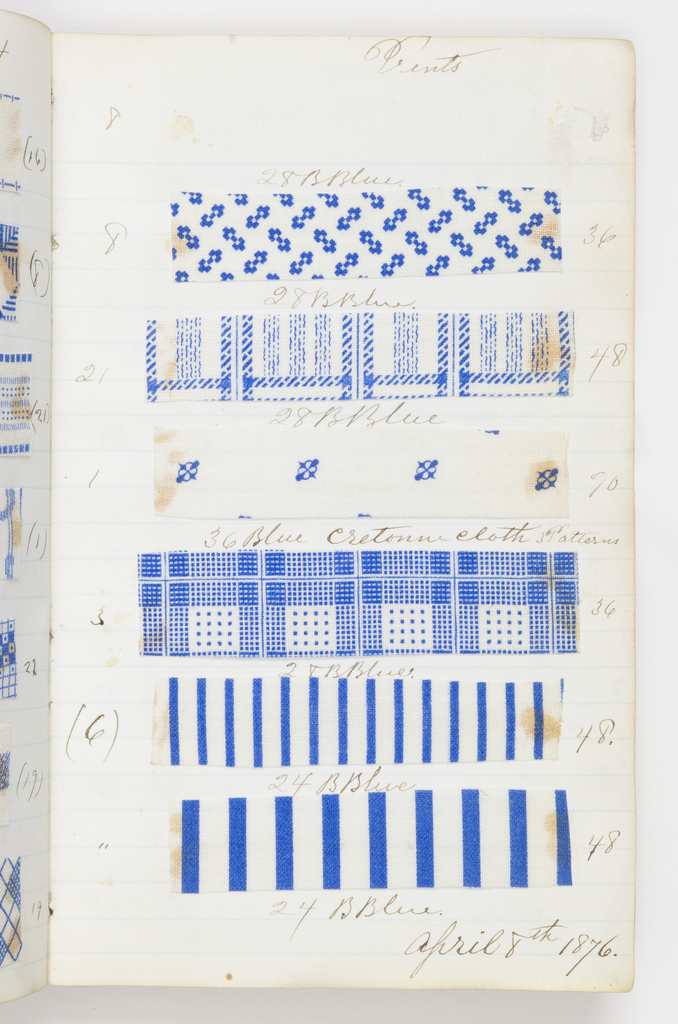 8
28 B Blue.
8 36
28 B Blue.
21 48
28 B Blue
1 90
36 Blue Cretonne cloth 3 Patterns
3 36
28 B Blue.
(6) 48.
24 B Blue
" 48
24 B Blue.
April 8th 1876.
(16)
(8)
(21)
(1)
22
(19)
19